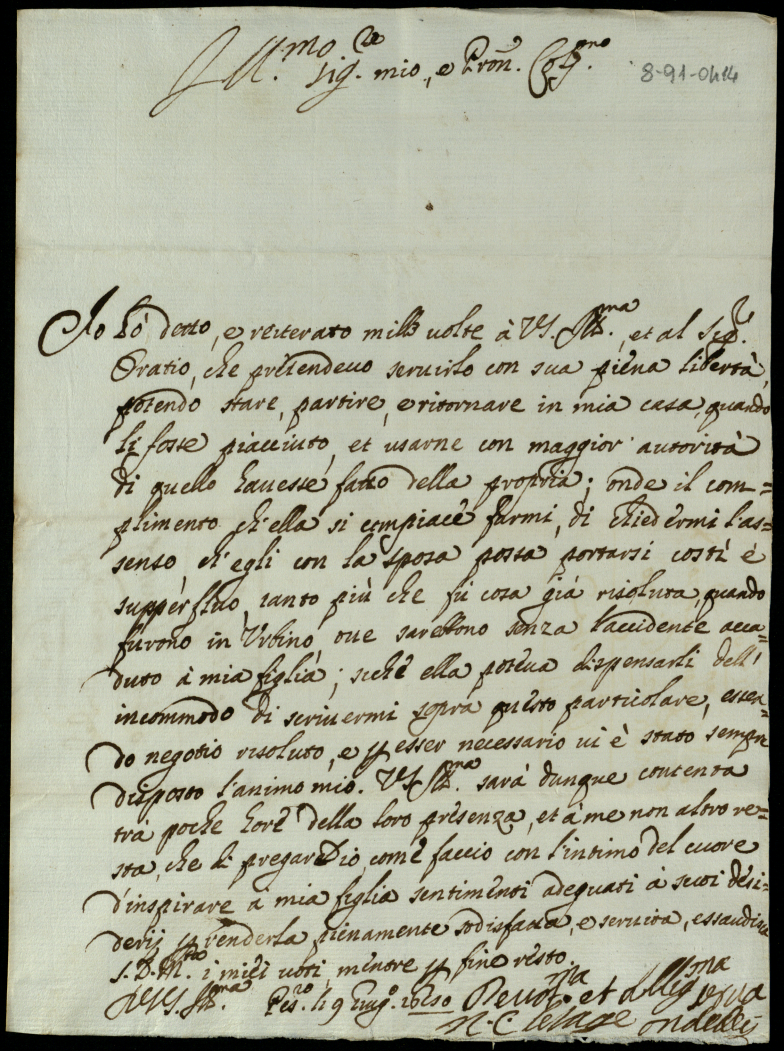 Ill.mo Sig.re mio, e Pron. Co.mo
8-91-0414
Io hò detto, e reiterato mille volte à V.S. Ill.ma, et al Sig.r
Oratio, che pretendevo servirlo con sua piena libertà,
potendo stare, partire, e ritornare in mia casa, quando
li fosse piacciuto, et usarne con maggior autorità
di quello havesse fatto della propria; onde il com=
plimento ch'ella si compiace farmi, di chiedermi l'as=
senso, ch'egli con la sposa possa portarsi costì è
supperfluo, tanto più che fù cosa già risoluta, quando
furono in Urbino, ove sarebbono senza l'accidente acca=
duto à mia figlia; sichè ella poteva dispensarsi dell'
incommodo di scrivermi sopra questo particolare, essen=
do negotio risoluto, e p esser necessario vi è stato sempre
disposto l'animo mio. V.S. Ill.ma sarà dunque contenta
trà poche hore della loro presenza, et à me non altro re=
sta, che di pregar Dio, come faccio con l'intimo del cuore
d'inspirare à mia figlia sentimenti adeguati à suoi desi=
derij p renderla pienamente sodisfatta, e servita, essaudisca
S.D.M. i miei voti, mentre p fine resto.
D V.S. Ill.ma Pes.o li 9 Lug.o Devot.ma et Obblig.ma
N. C. Cesare